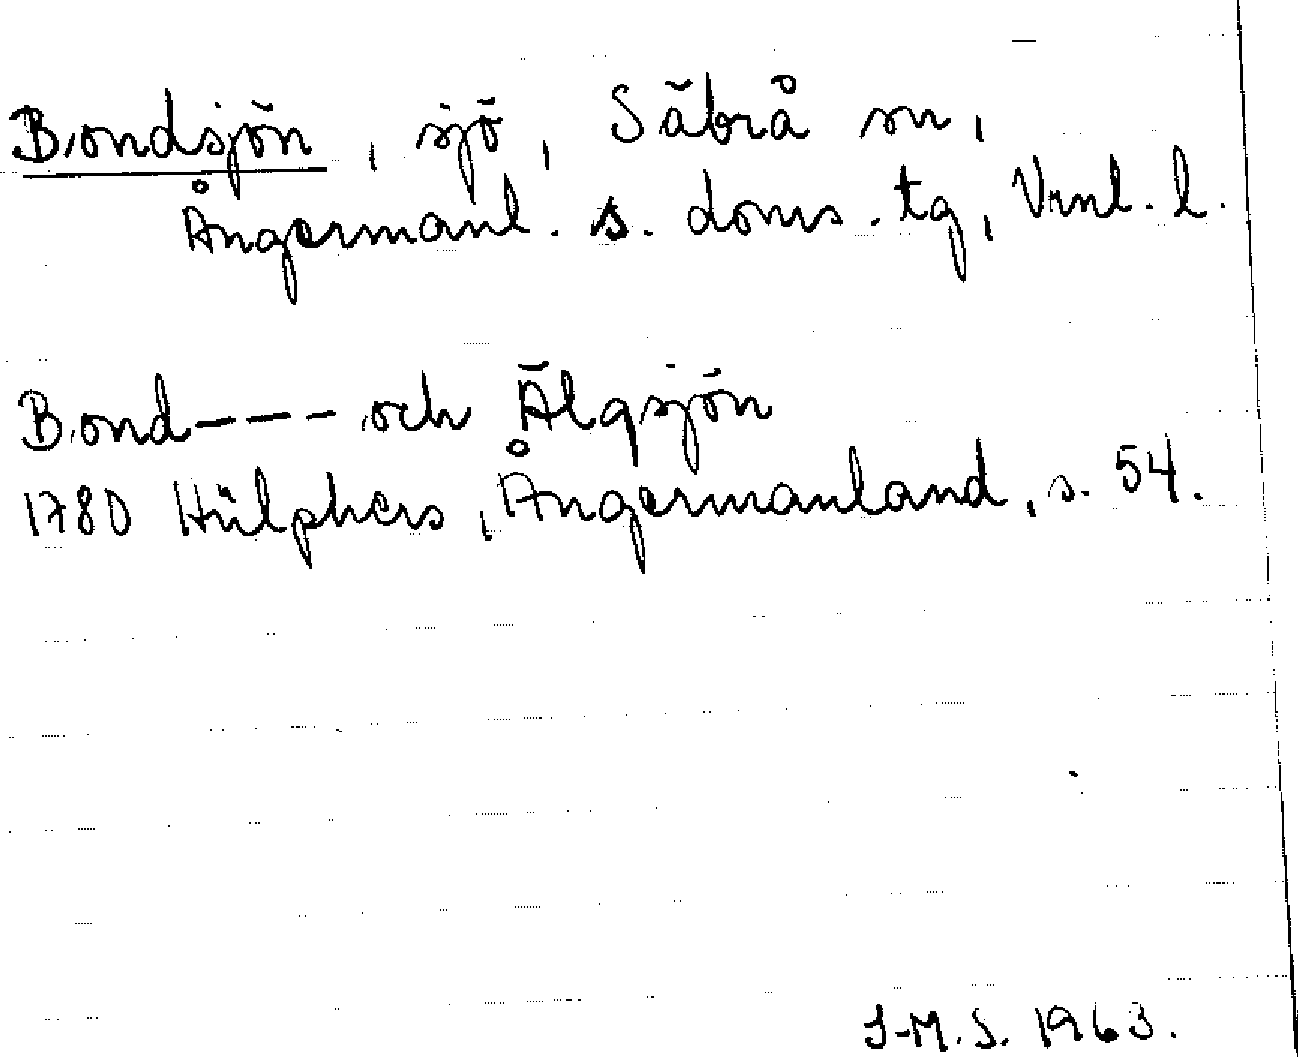 Bondsjön, sjö, Säbrå sn,
Ångermanl. s. doms. tg, Vrnl. l.
Bond--- och Älgsjön
1780 Hülphers, Ångermanland, s. 54.
I-M.S. 1963.